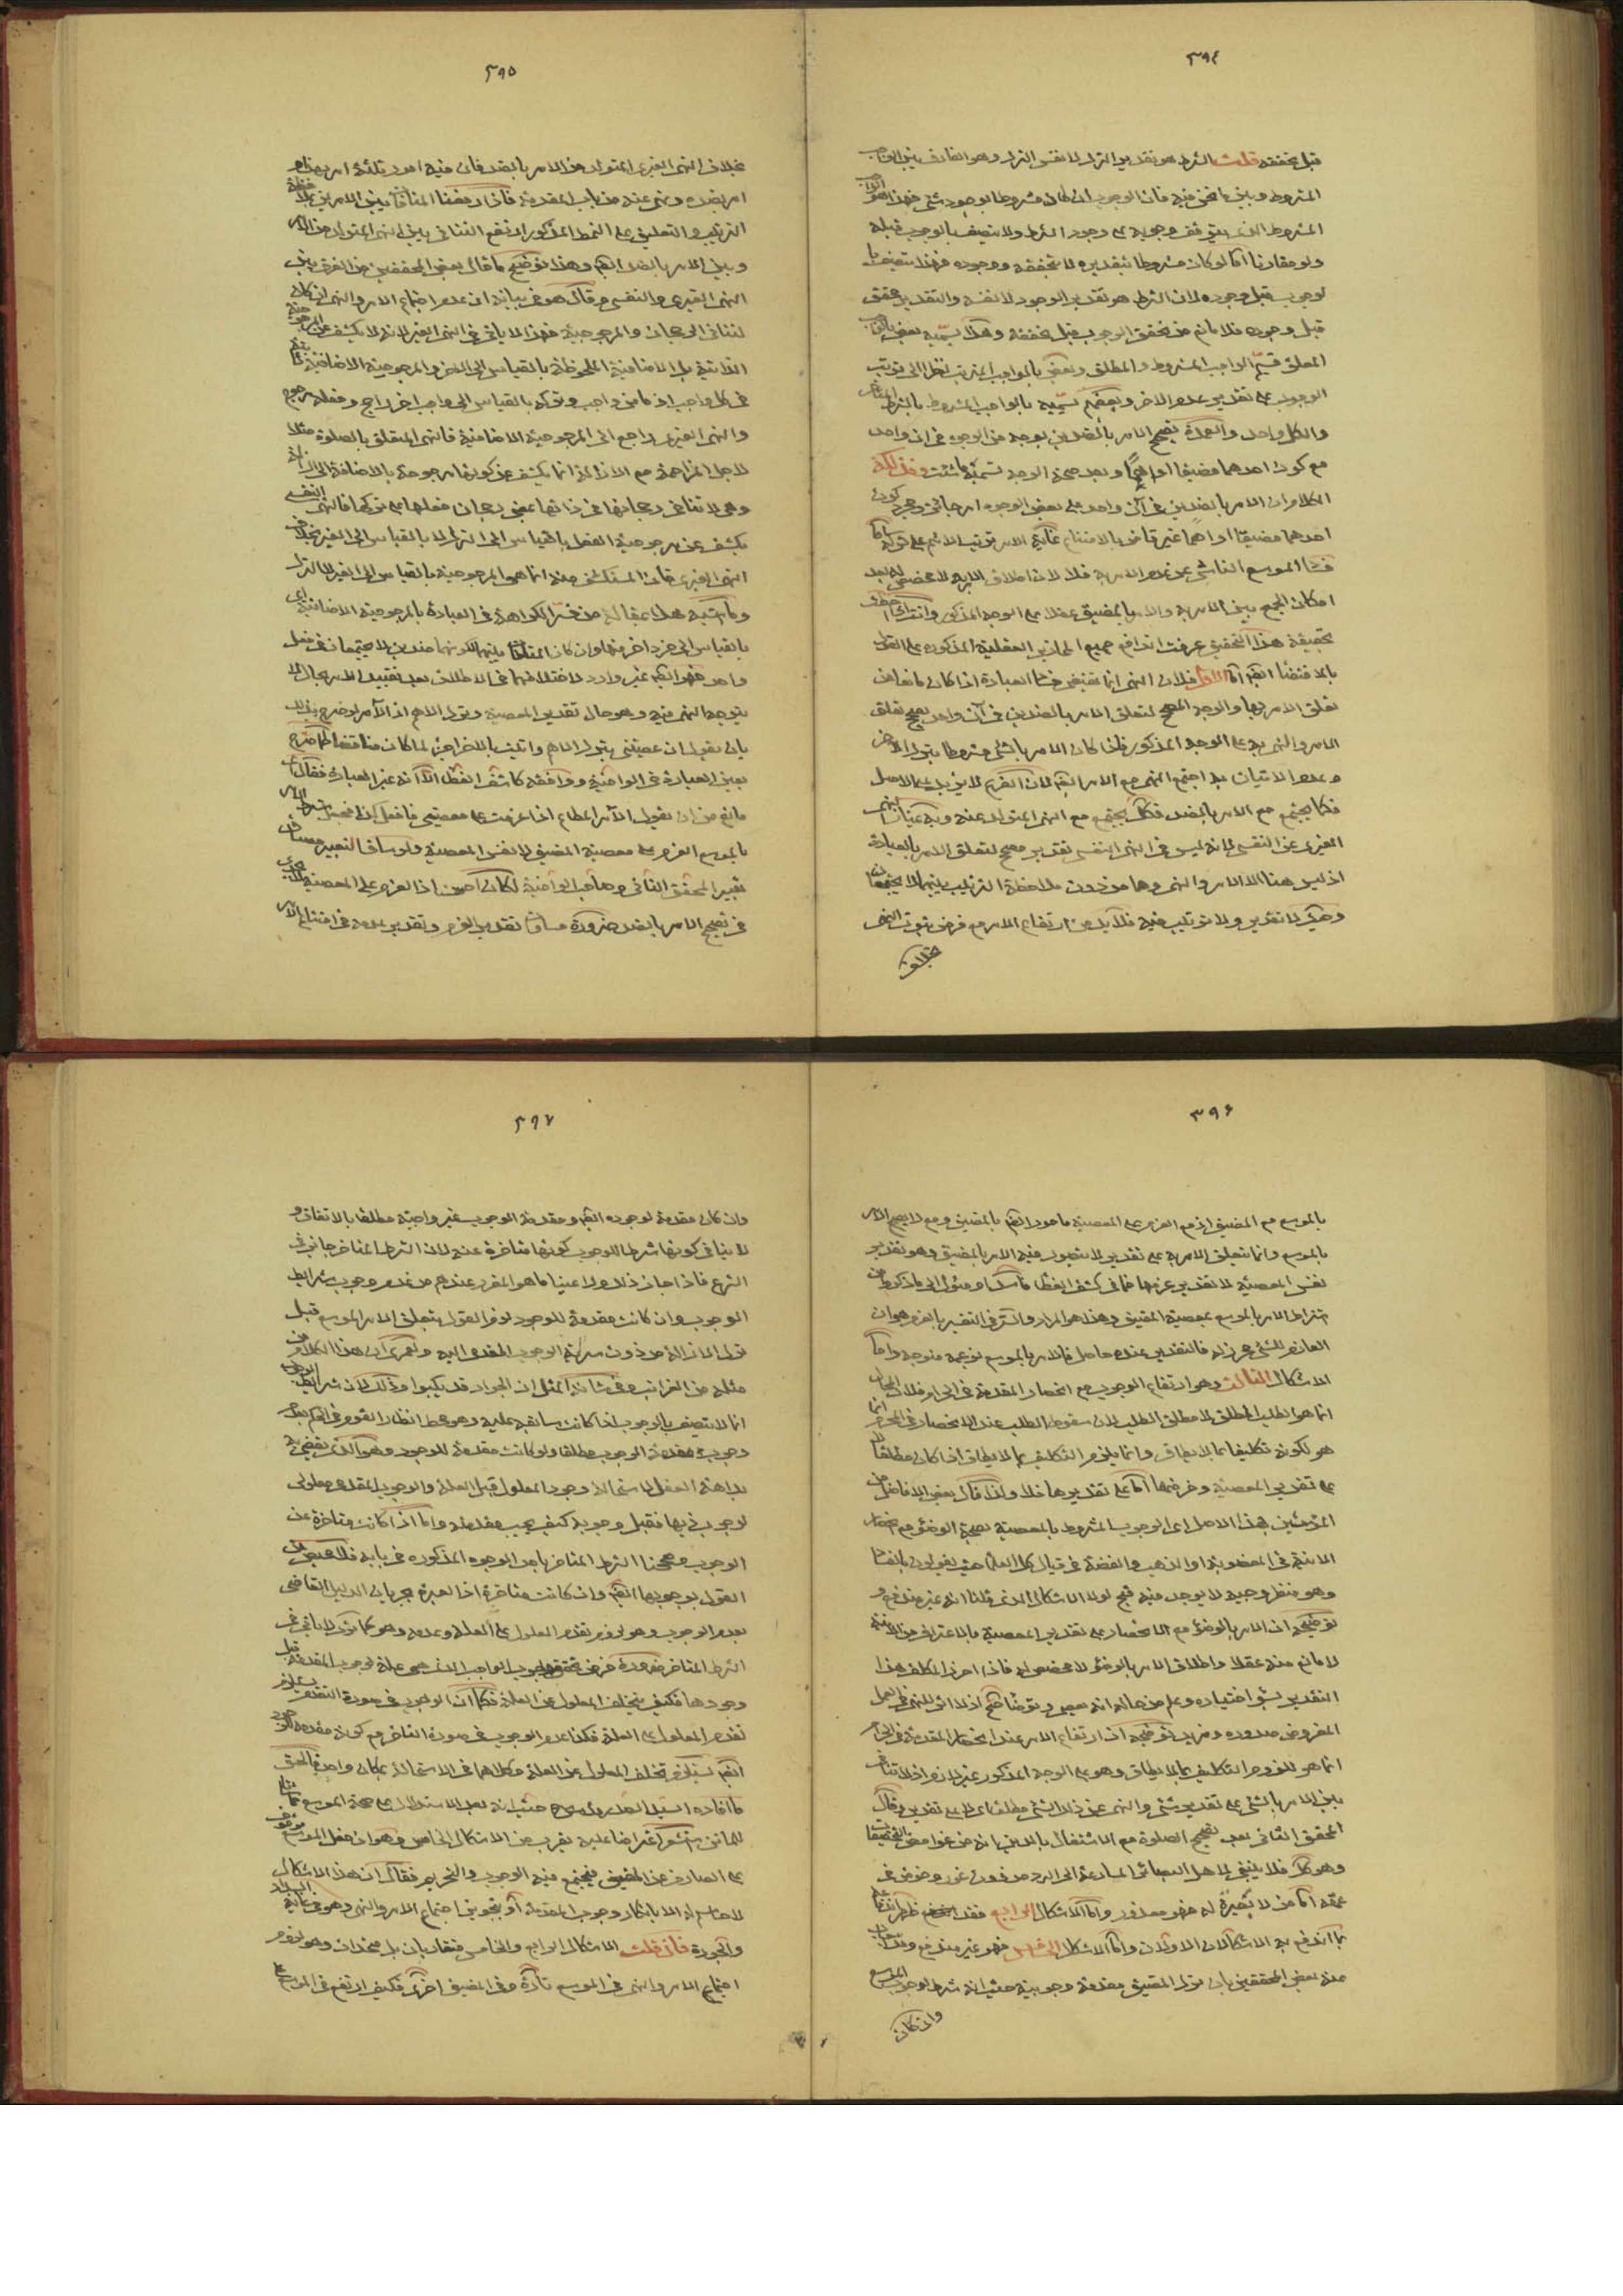 ٣٩٤
قبل تحققه قلت الشرط هو تقدير الترك لا نفس الترك وهو الفارق بين الواجب
المشروط وبين ما نحن فيه فان الوجوب ان كان مشروطا بوجود شئ فهذا هو الواجب
المشروط الذى يتوقف وجوبه على وجود الشرط ولا يتصف بالوجوب قبله
ولو مقارنا اما لو كان مشروطا بتقديره لا بتحققه ووجوده فهذا يتصف با
لوجوب قبل وجوده لان الشرط هو تقدير الوجود لا نفسه والتقدير محقق
قبل وجوده فلا مانع من تحقق الوجوب قبل تحققه وهذا يسميه بعض بالواجب
المعلق قسيم الواجب المشروط والمطلق وبعض بالواجب المرتب نظرا الى ترتب
الوجوب على تقدير عدم الاخر وبعضهم يسميه بالواجب المشروط بالشرط المتاخر
والكل واحد والعمدة تصحيح الامر بالضدين بوجه من الوجوه فى ان واحد
مع كون احدهما مضيقا او اهما وبعد صحة الوجه تسميه ما شئت وفذلكة
الكلام ان الامر بالضدين فى آن واحد على بعض الوجوه امر جائز ومجرد كون
احدهما مضيقا او اهما غير قاض بالامتناع غاية الامر ترتب الاثم على تركه واما
فساد الموسع الناشى عن عدم الامر به فلا لان اطلاق الامر به لا مخصص له بعد
امكان الجمع بين الامر به والامر بالمضيق عقلا على الوجه المذكور وانت اذا احطت
بحقيقة هذا التحقيق عرفت اندفاع جميع المحاذير العقلية المذكورة على القول
بالاقتضاء ايضا اما الاول فلان النهى انما يقتضى فساد العبادة اذا كان مانعا من
تعلق الامر بها والوجه المصحح لتعلق الامر بالضدين فى آن واحد يصحح تعلق
الامر والنهى به على الوجه المذكور فاذا كان الامر بالشئ مشروطا بترك الاخر
وعدم الاتيان به اجتمع النهى مع الامر ايضا لان الفرع لا يزيد على الاصل
فكما يجتمع مع الامر بالضد فكذا يجتمع مع النهى المتولد عنه وبه يمتاز النهى
الغيرى عن النفسى فانه ليس فى النهى النفسى تقدير مصحح لتعلق الامر بالعبادة
اذ ليس هنا الا الامر والنهى وهما من دون ملاحظة الترتيب بينهما لا يجتمعان
وهنا لا تقدير ولا ترتيب فيه فلا بد من ارتفاع الامر مع فرض ثبوت النهى
بخلاف
٣٩٥
بخلاف النهى الغيرى المتولد من الامر بالضد فان فيه امورا ثلثة امر بضد وامر
امر بضده ونهى عنه من باب المقدمة فاذا رفعنا المنافاة بين الامرين بملاحظة
الترتيب والتعليق على النمط المذكور ارتفع التنافى بين النهى المتولد من الامر
وبين الامر بالضد ايضا وهذا توضيح ما قال بعض المحققين من الفرق بين
النهى الغيرى والنفسى وقال هو فى بيانه ان عدم اجتماع الامر والنهى ان كان
لتنافى الرجحان والمرجوحية فهذا لا ياتى فى النهى الغيرى لانه لا يكشف عن المرجوحية
الذاتية بل الاضافية الملحوظة بالقياس الى الغير والمرجوحية الاضافية
فى كل واجب اذ ما من واجب وتركه بالقياس الى واجب اخر راجح وفعله مرجوح
والنهى الغيرى راجع الى المرجوحية الاضافية فالنهى المتعلق بالصلوة مثلا
لاجل المزاحمة مع الازالة انما يكشف عن كونها مرجوحة بالاضافة الى الازالة
وهى لا تنافى رجحانها فى ذاتها بمعنى رجحان فعلها على تركها فالنهى النفسى
يكشف عن مرجوحية الفعل بالقياس الى الترك لا بالقياس الى الغير بخلاف
النهى الغيرى فان المستكشف منه انما هى المرجوحية بالقياس الى الغير لا الترك
وما اشبه هذا بمقالة من فسر الكراهة فى العبادة بالمرجوحية الاضافية اى
بالقياس الى فرد اخر منها وان كان المنافاة بينهما لكونهما ضدين لا يجتمعان فى محل
واحد فهو ايضا غير وارد لاختلافهما فى الاطلاق بعد تقييد الامر بحال لا
يتوجه النهى فيه وهو حال تقدير المعصية وترك الاهم اذ الآمر لو صرح بذلك
بان يقول ان عصيتنى بترك الاهم وأتيت بالاخر اجزء لما كان مناقضا كما صرح
بعين العبارة فى الوافية ووافقه كاشف الغطاء الا انه غير العبارة فقال لا
مانع من ان يقول الآمر المطاع اذا عزمت على معصيتى فافعل كذا فجعل شرط الامر
بالموسع العزم على معصية المضيق لا نفس المعصية ولو ساق التعبير مساق
تعبير المحقق الثانى وصاحب الوافية لكان احسن اذ العزم على المعصية لا يجدى
فى تصحيح الامر بالضد ضرورة مساواة تقدير العزم وتقدير عدمه فى امتناع الامر
٣٩٦
بالموسع مع المضيق اذ مع العزم على المعصية مامور ايضا بالمضيق ومعه لا يصح الامر
بالموسع وانما يتعلق الامر به على تقدير لا يتصور فيه الامر بالمضيق وهو تقدير
نفس المعصية لا تقدير عزمها فما فى كشف الغطاء ماسك او مئول الى ما ذكروا من
اشتراط الامر بالموسع بمعصية المضيق وهذا هو المراد والسر فى التعبير بالعزم هو ان
العازم للشئ محرز له فالتقدير عنده حاصل فالامر بالموسع بزعمه متوجه واما
الاشكال الثالث وهو ارتفاع الوجوب مع انحصار المقدمة فى الحرام فلان المحال
انما هو الطلب المطلق لا مطلق الطلب لان سقوط الطلب عند الانحصار فى المحرم انما
هو لكونه تكليفا بما لا يطاق وانما يلزم التكليف بما لا يطاق اذا كان مطلقا لا
على تقدير المعصية وفرضها اما على تقديرها فلا ولذا قال بعض الافاضل من
المؤسسين لهذا الاصل اى الوجوب المشروط بالمعصية بصحة الوضوء مع انحصار
الانية فى المغصوبة او الذهب والفضة فى قبال كل العلماء حيث يقولون بالفساد
وهو منظر وجيه لا يوجد فيه قبح لولا الاشكال الذى قلنا انه غير مندفع و
توضيحه ان الامر بالوضوء مع الانحصار على تقدير المعصية بالاغتراف من الانية
لا مانع منه عقلا واطلاق الامر بالوضوء لا مخصص له فاذا احرز المكلف هذا
التقدير بسوء اختياره وعلم من حاله انه يعصى وتوضأ صح اذ لا اثر للنهى فى الفعل
المفروض صدوره ومزيد توضيحه ان ارتفاع الامر عند انحصار المقدمة فى الحرام
انما هو للزوم التكليف بما لا يطاق وهو على الوجه المذكور غير لازم اذ لا تنافى
بين الامر بالشئ على تقدير شئ والنهى عن ذلك الشئ مطلقا اى على كل تقدير وقال
المحقق الثانى بعد تصحيح الصلوة مع الاشتغال بالدين بانه من غوامض التحقيقات
وهو كك فلا ينبغى لاهل البصائر المسارعة الى الرد من دون غور وخوض فى
عمقه اما من لا بصيرة له فهو معذور واما الاشكال الرابع فقد ظهر اندفاعه
بما اندفع به الاشكالان الاولان واما الاشكال الخامس فهو غير مندفع وقد اجاب
عنه بعض المحققين بان ترك المضيق مقدمة وجوبية حيث انه شرط لوجوب الموسع
وان كان
٣٩٧
وان كان مقدمة لوجوده ايضا ومقدمة الوجوب غير واجبة مطلقا بالاتفاق و
لا ينافى كونها شرطا للوجوب كونها متاخرة عنه لان الشرط المتاخر جائز فى
الشرع فاذا جاز ذلك ولاحظنا ما هو المقرر عندهم من عدم وجوب شرايط
الوجوب وان كانت مقدمة للوجود لزم القول بتعلق الامر بالموسع قبل
ترك الازالة من دون سراية الوجوب المقدمى اليه ولعمرى ان هذا الكلام من
مثله من الغرائب وفى شانه المثل ان الجواد قد يكبو وذلك لان شرايط الوجوب
انما لا يتصف بالوجوب اذا كانت سابقة عليه وهو محط انظار القوم فى الحكم بعدم
وجوب مقدمة الوجوب مطلقا ولو كانت مقدمة للوجود وهو الذى يقضى به
بداهة العقل لاستحالة وجود المعلول قبل العلة والوجوب المقدمى معلول
لوجوب ذيها فقبل وجوبه كيف يجب مقدمته واما اذا كانت متاخرة عن
الوجوب وصححنا الشرط المتاخر باحد الوجوه المذكورة فى بابه فلا محيص عن
القول بوجوبها ايضا وان كانت متاخرة اذ العبرة بجريان الدليل القاضى
بعدم الوجوب وهو لزوم تقدم المعلول على العلة وعدمه وهو كما ترى لا ياتى فى
الشرط المتاخر ضرورة فرض تحقق وجوب الواجب الذى هى علة لوجوب المقدمة قبل
وجودها فكيف يتخلف المعلول عن العلة فكما ان الوجوب فى صورة التقدم يستلزم
تقدم المعلول على العلة فكذا عدم الوجوب فى صورة التاخر مع كونه مقدمة للوجود
ايضا يستلزم تخلف المعلول عن العلة وكلاهما فى الاستحالة بمكان واحد فالحق
ما افاده السيد الصدر حيث انه بعد الاستدلال على صحة الموسع
للماتن استشعر اعتراضا عليه يقرب من الاشكال الخامس وهو ان فعل الموسع موقوف
على الصارف عن المضيق فيجتمع فيه الوجوب والتحريم فقال ان هذا الاشكال
لا حاسم له الا بانكار وجوب المقدمة او بتجويز اجتماع الامر والنهى وهو فى غاية السداد
والجودة فان قلت الاشكال الرابع والخامس متقاربان بل متحدان وهو لزوم
اجتماع الامر والنهى فى الموسع تارة وفى المضيق اخرى فكيف ارتفع فى الموسع